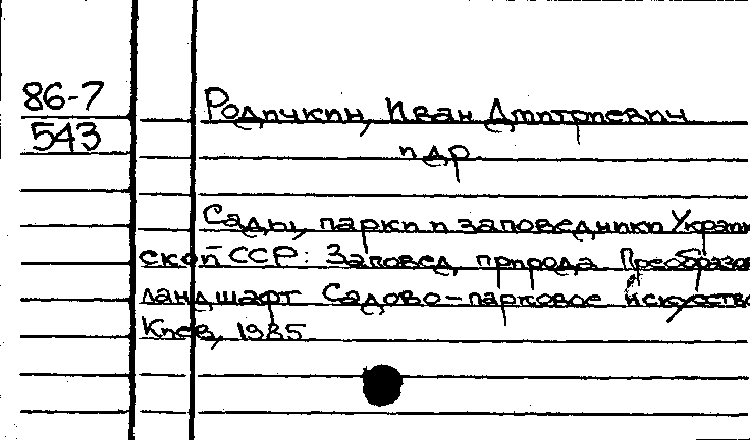 86-7
543
Родичкин, Иван Дмитриевич
и др.
Сады, парки и заповедники Украин
ской ССР: Заповед. природа. Преобразов
ландшафт. Садово-парковое искусство
Киев, 1985